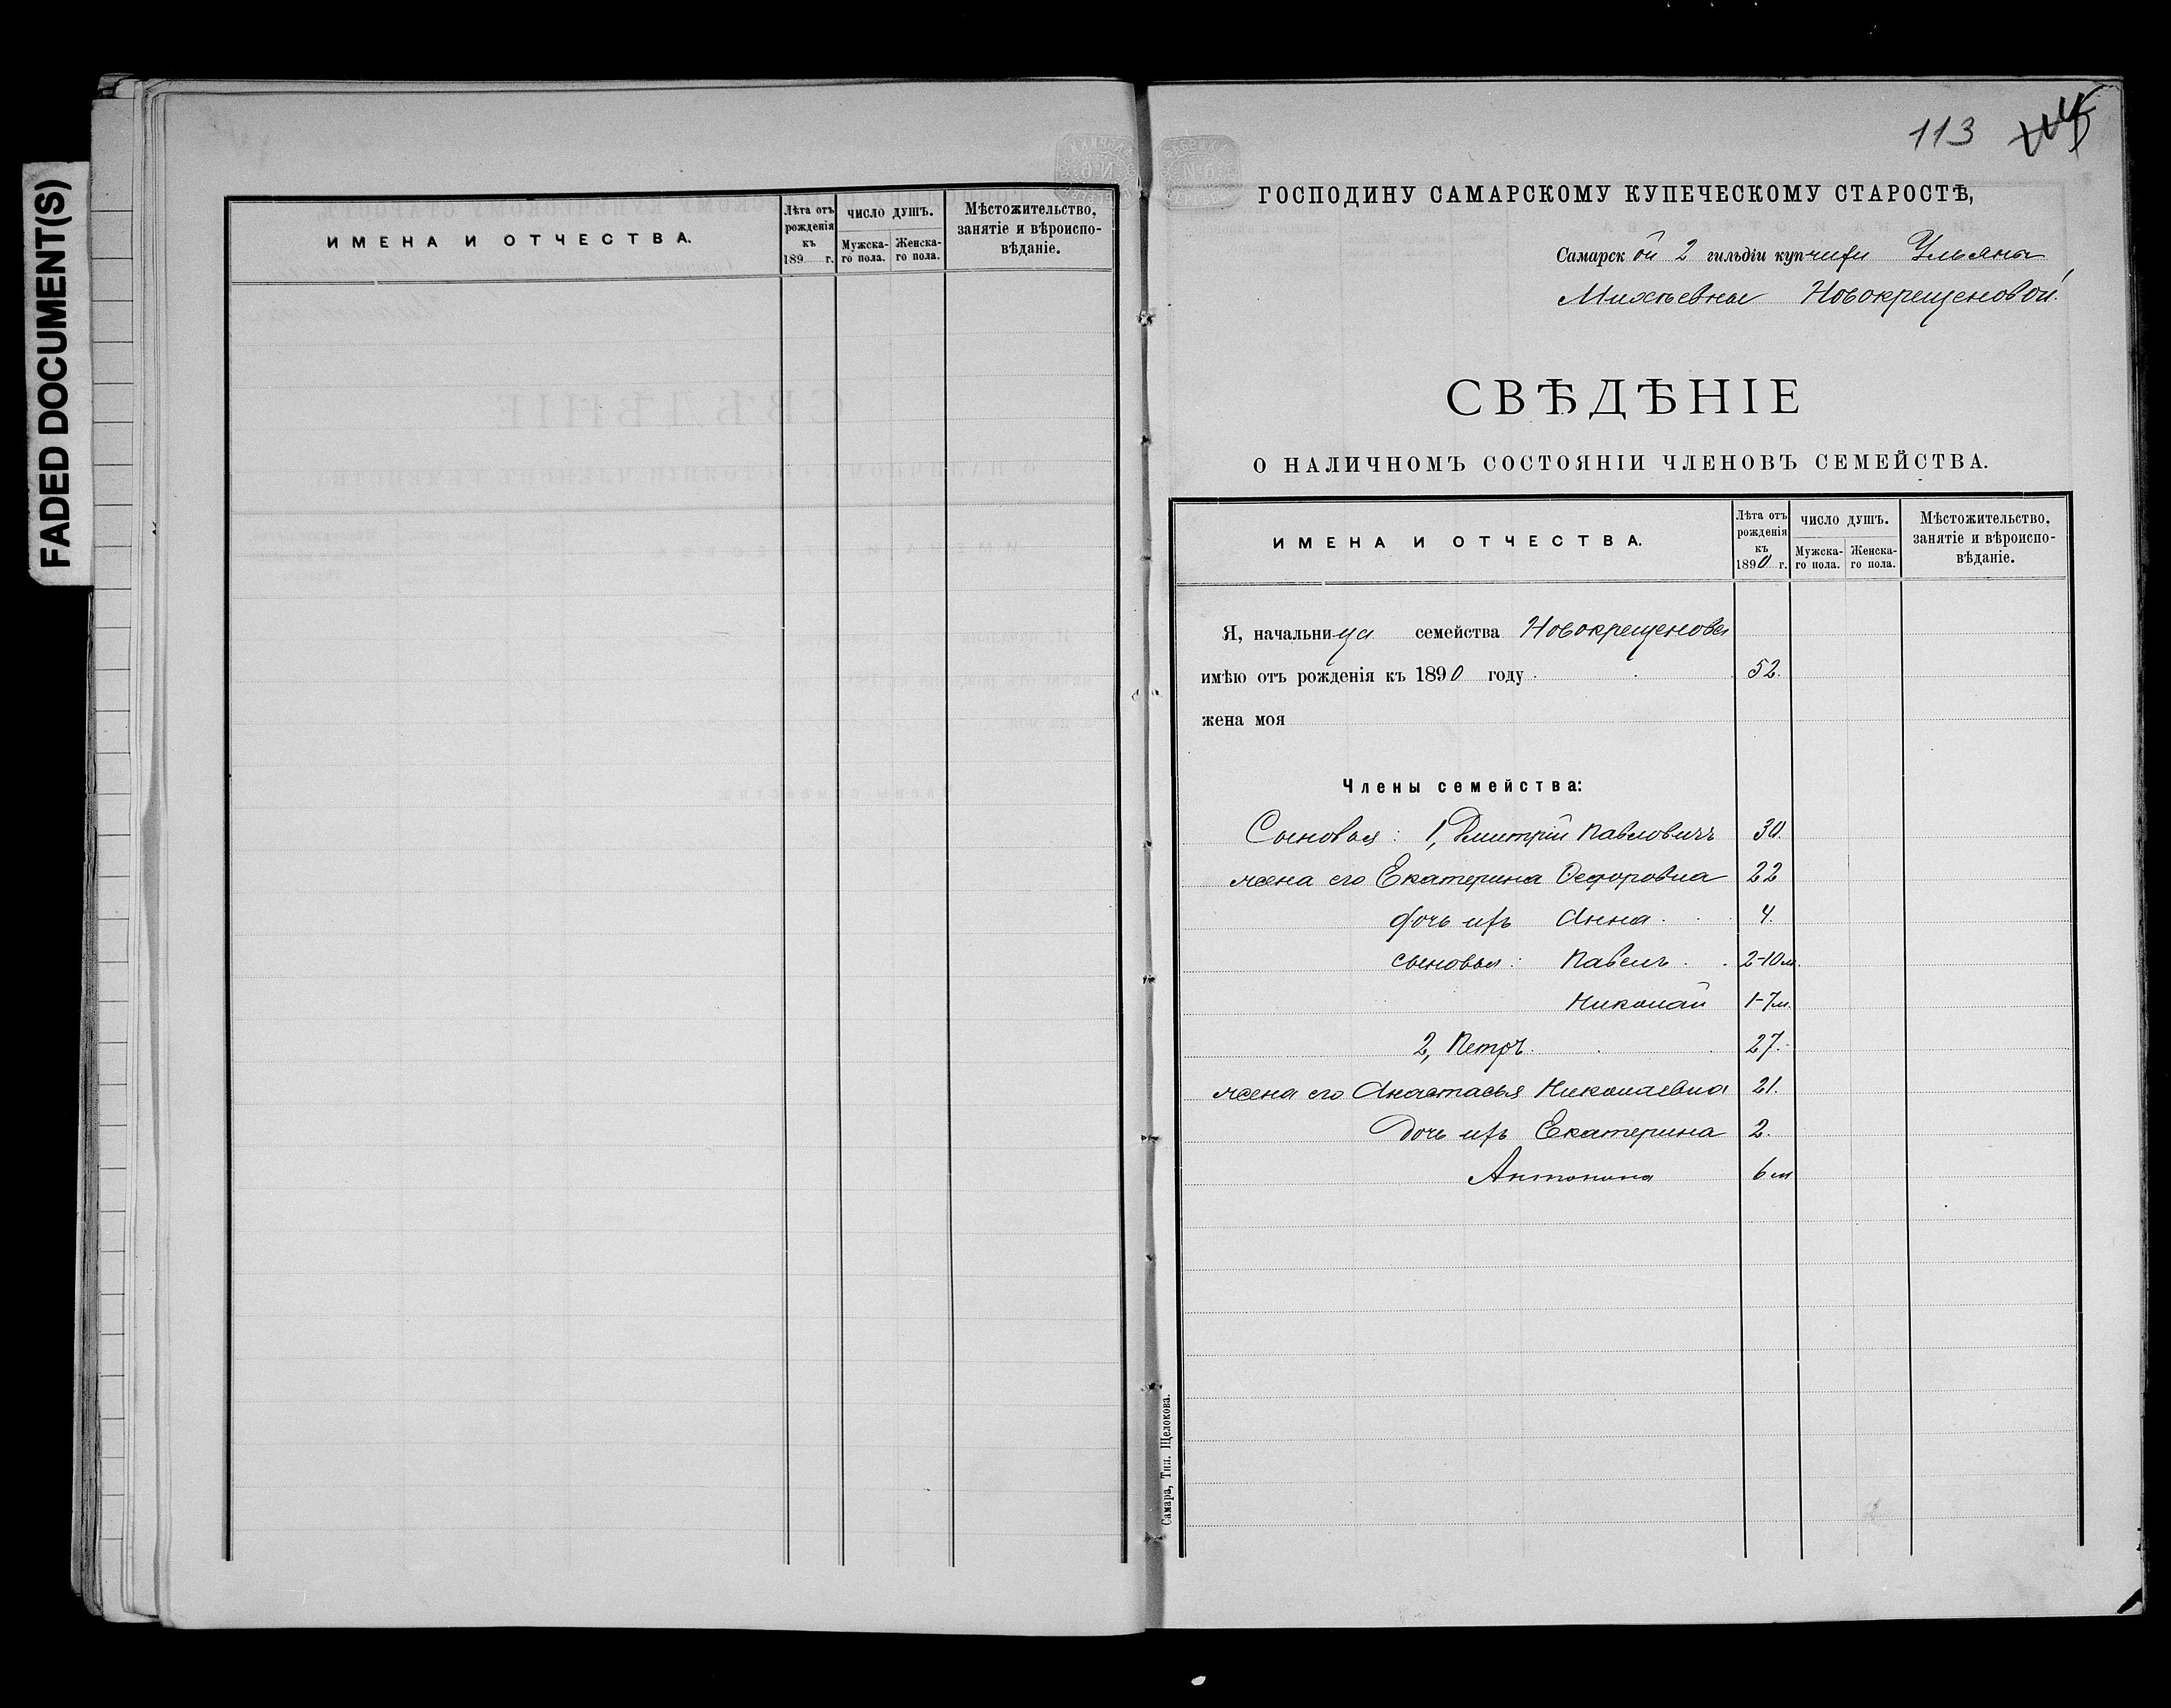 FADED DOCUMENT(S)
ИМЕНА И ОТЧЕСТВА.
Лѣта отъ рожденія къ 189 г.
ЧИСЛО ДУШЪ.
Мужска-го пола.
Женска-го пола.
Мѣстожительство, занятіе и вѣроиспо-вѣданіе.
113
ГОСПОДИНУ САМАРСКОМУ КУПЕЧЕСКОМУ СТАРОСТѢ,
Самарской 2 гильдіи купчихи Ульяны
Михѣевны Новокрещеновой.
СВѢДѢНІЕ
О НАЛИЧНОМЪ СОСТОЯНІИ ЧЛЕНОВЪ СЕМЕЙСТВА.
ИМЕНА И ОТЧЕСТВА.
Лѣта отъ рожденія къ 1890 г.
ЧИСЛО ДУШЪ.
Мужска-го пола.
Женска-го пола.
Мѣстожительство, занятіе и вѣроиспо-вѣданіе.
Я, начальница семейства Новокрещенова
имѣю отъ рожденія къ 1890 году 52.
жена моя
Члены семейства:
Сыновья: 1, Дмитрій Павловичъ 30.
жена его Екатерина Федоровна 22
дочь ихъ Анна 4.
сыновья: Павелъ 2-10 м.
Николай 1-7 м.
2, Петръ 27.
жена его Анастасья Николаевна 21.
дочь ихъ Екатерина 2.
Антонина 6 м
Самара, Тип. Щелокова.